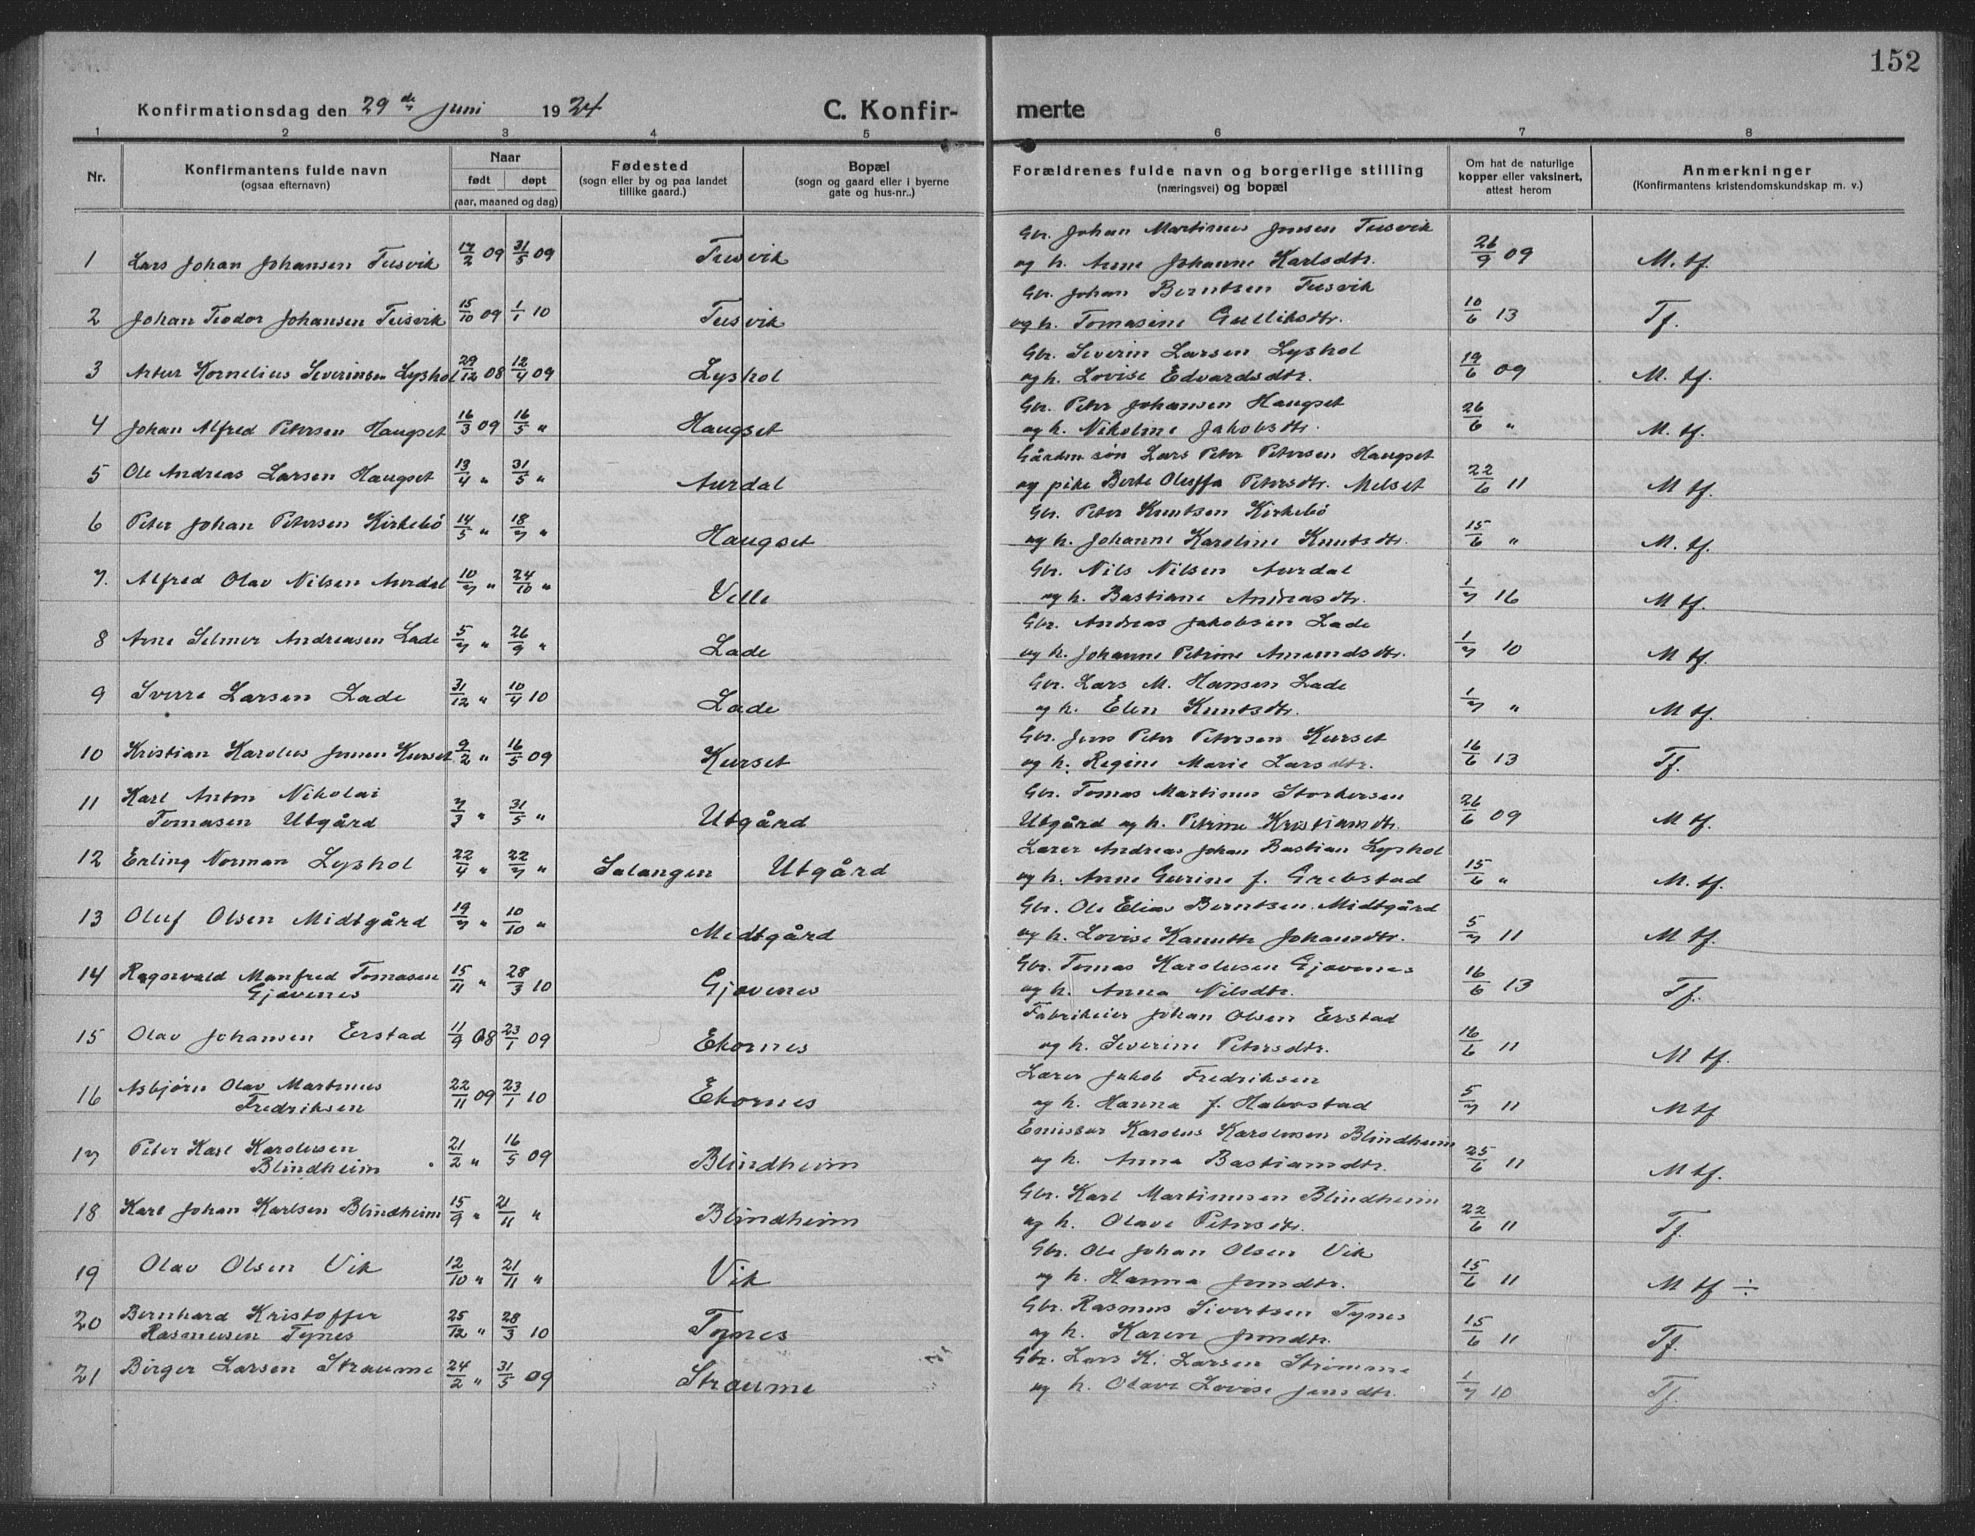 152
Konfirmationsdag den 29de juni 1924 C. Konfir- merte
1 2 3 4 5 6 7 8
Nr. Konfirmantens fulde navn (ogsaa efternavn) Naar født døpt (aar, maaned og dag) Fødested (sogn eller by og paa landet tillike gaard.) Bopæl (sogn og gaard eller i byerne gate og hus-nr.) Forældrenes fulde navn og borgerlige stilling (næringsvei) og bopæl Om hat de naturlige kopper eller vaksinert, attest herom Anmerkninger (Konfirmantens kristendomskundskap m. v.)
Gbr. Johan Martinus Jensen Tusvik
1 Lars Johan Johansen Tusvik 17/2 09 31/5 09 Tusvik og h. Anne Johanne Karlsdtr. 26/9 09 M. tf.
Gbr. Johan Berntsen Tusvik
2 Johan Teodor Johansen Tusvik 15/10 09 1/1 10 Tusvik og h. Tomasine Gulliksdtr. 10/6 13 Tf.
Gbr. Severin Larsen Lyshol
3 Artur Kornelius Severinsen Lyshol 29/12 08 12/4 09 Lyshol og h. Lovise Edvardsdtr. 19/6 09 M. tf.
Gbr. Peter Johansen Haugset
4 Johan Alfred Petersen Haugset 16/3 09 16/5 " Haugset og h. Nikoline Jakobsdtr. 26/6 " M. tf.
Gårdm. søn Lars Peter Petersen Haugset
5 Ole Andreas Larsen Haugset 13/4 " 31/5 " Aurdal og pike Berte Oluffa Petersdtr. Melset 22/6 11 M tf.
Gbr. Peter Knutsen Kirkebö
6 Peter Johan Petersen Kirkebö 14/5 " 18/7 " Haugset og h. Johanne Karoline Knutsdtr. 15/6 " M. tf.
Gbr. Nils Nilsen Aurdal
7. Alfred Olav Nilsen Aurdal 10/7 " 24/10 " Velle og h. Bastiane Andreasdtr. 1/7 16 M tf.
Gbr. Andreas Jakobsen Lade
8 Arne Selmer Andreasen Lade 5/7 " 26/9 " Lade og h. Johanne Petrine Amundsdtr. 1/7 10 M tf.
Gbr. Lars M. Hansen Lade
9 Sverre Larsen Lade 31/12 " 10/4 10 Lade og h. Elen Knutsdtr. 1/7 " M tf.
Gbr. Jens Peter Petersen Kurset
10 Kristian Karolus Jensen Kurset 9/2 " 16/5 09 Kurset og h. Regine Marie Larsdtr. 16/6 13 Tf.
11 Karl Anton Nikolai Gbr. Tomas Martinus Storkersen
Tomasen Utgård 7/3 " 31/5 " Utgård Utgård og h. Petrine Kristiansdtr. 26/6 09 M tf.
Lærer Andreas Johan Bastian Lyshol
12 Erling Norman Lyshol 22/4 " 22/7 " Salangen Utgård og h. Anne Gurine f. Grebstad 15/6 " M. tf.
Gbr. Ole Elias Berntsen Midtgård
13 Oluf Olsen Midtgård 19/7 " 10/10 " Midtgård og h. Lovise Kanutte Johansdtr. 5/7 11 M tf.
14 Ragnvald Manfred Tomasen Gbr. Tomas Karolusen Gjævenes
Gjævenes 15/11 " 28/3 10 Gjævenes og h. Anna Nilsdtr. 16/6 13 Tf.
Fabrikeier Johan Olsen Erstad
15 Olav Johansen Erstad 11/9 08 23/1 09 Ekornes og h. Severine Petersdtr. 16/6 11 M tf.
16 Asbjørn Olav Martinus Lærer Jakob Fredriksen
Fredriksen 22/11 09 23/1 10 Ekornes og h. Hanna f. Habostad 5/7 11 M tf
17 Peter Karl Karolusen Emissær Karolus Karolusen Blindheim
Blindheim 21/2 " 16/5 09 Blindheim og h. Anna Bastiansdtr. 25/6 11 M tf.
Gbr. Karl Martinusen Blindheim
18 Karl Johan Karlsen Blindheim 15/9 " 21/11 " Blindheim og h. Olave Petersdtr. 22/6 11 Tf.
Gbr. Ole Johan Olsen Vik
19 Olav Olsen Vik 12/10 " 21/11 " Vik og h. Hanna Jensdtr. 15/6 11 M tf ÷
20 Bernhard Kristoffer Gbr. Rasmus Sivertsen Tynes
Rasmusen Tynes 25/12 " 28/3 10 Tynes og h. Karen Jensdtr. 15/6 11 Tf.
Gbr. Lars K. Larsen Strømme
21 Birger Larsen Straume 24/2 " 31/5 09 Straume og h. Olave Lovise Jensdtr. 1/7 10 Tf.